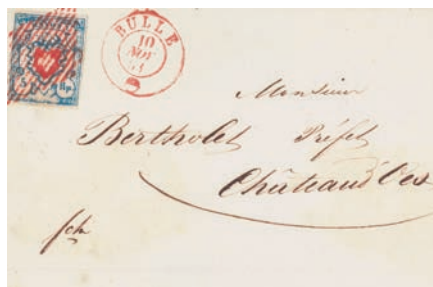 BULLE
10
NOV
Monsieur
Bertholet Préfet
Château d'Oex